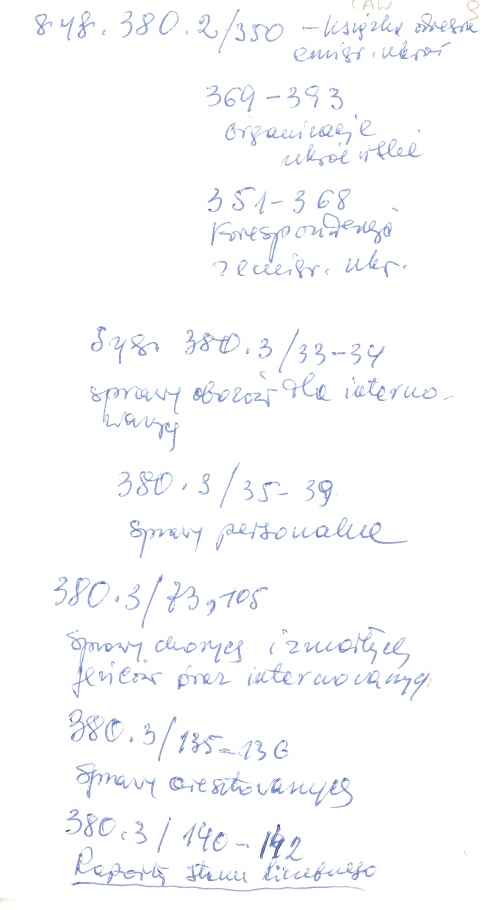 CAW
syg. 380.2/350 – Książka adresów
emigr. ukraiń
369–393
organizacje
ukraińskie
351–368
Korespondencja
z emigr. ukr.
Syg. 380.3/33–34
sprawy obozów dla interno-
wanych
380.3/35–39
Sprawy personalne
380.3/73, 105
Sprawy chorych i zmarłych
jeńców oraz internowanych
380.3/135–136
Sprawy aresztowanych
380.3/140–142
Raporty stanu liczebnego